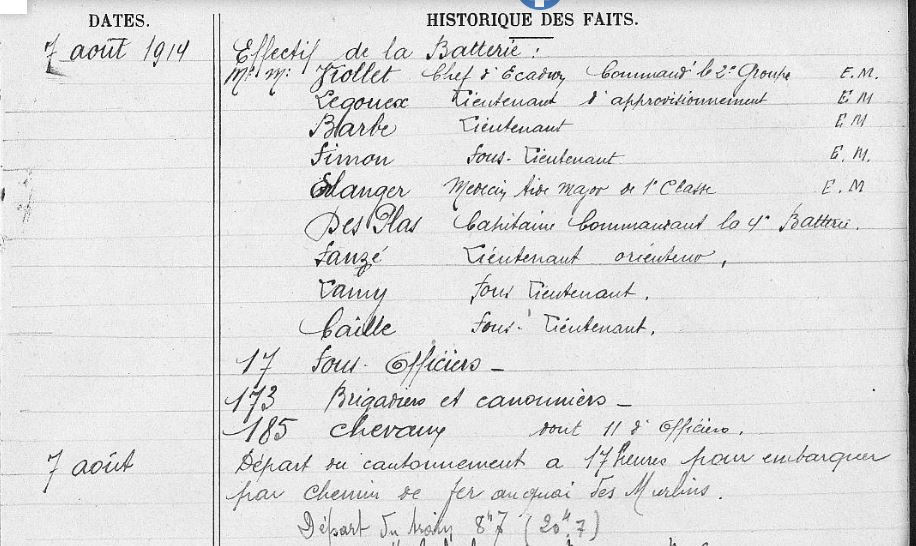 DATES.
HISTORIQUE DES FAITS.
7 août 1914
Effectif de la Batterie :
Mr. M: Viollet Chef d'Escadron Command' le 2e Groupe E. M.
Legouex Lieutenant d'approvisionnement E M
Barbe Lieutenant E M
Simon Sous-Lieutenant E. M.
Elanger Médecin Aide Major de 1e Classe E. M
Des Plas Capitaine Commandant la 4e Batterie.
Sanzé Lieutenant orienteur,
Lamy Sous Lieutenant.
Caille Sous-Lieutenant.
17 Sous-Officiers –
173 Brigadiers et canonniers –
185 chevaux dont 11 d'Officiers.
7 août
Départ du cantonnement a 17 heures pour embarquer
par chemin de fer au quai des
Départ du train 8h7 (20h.7)